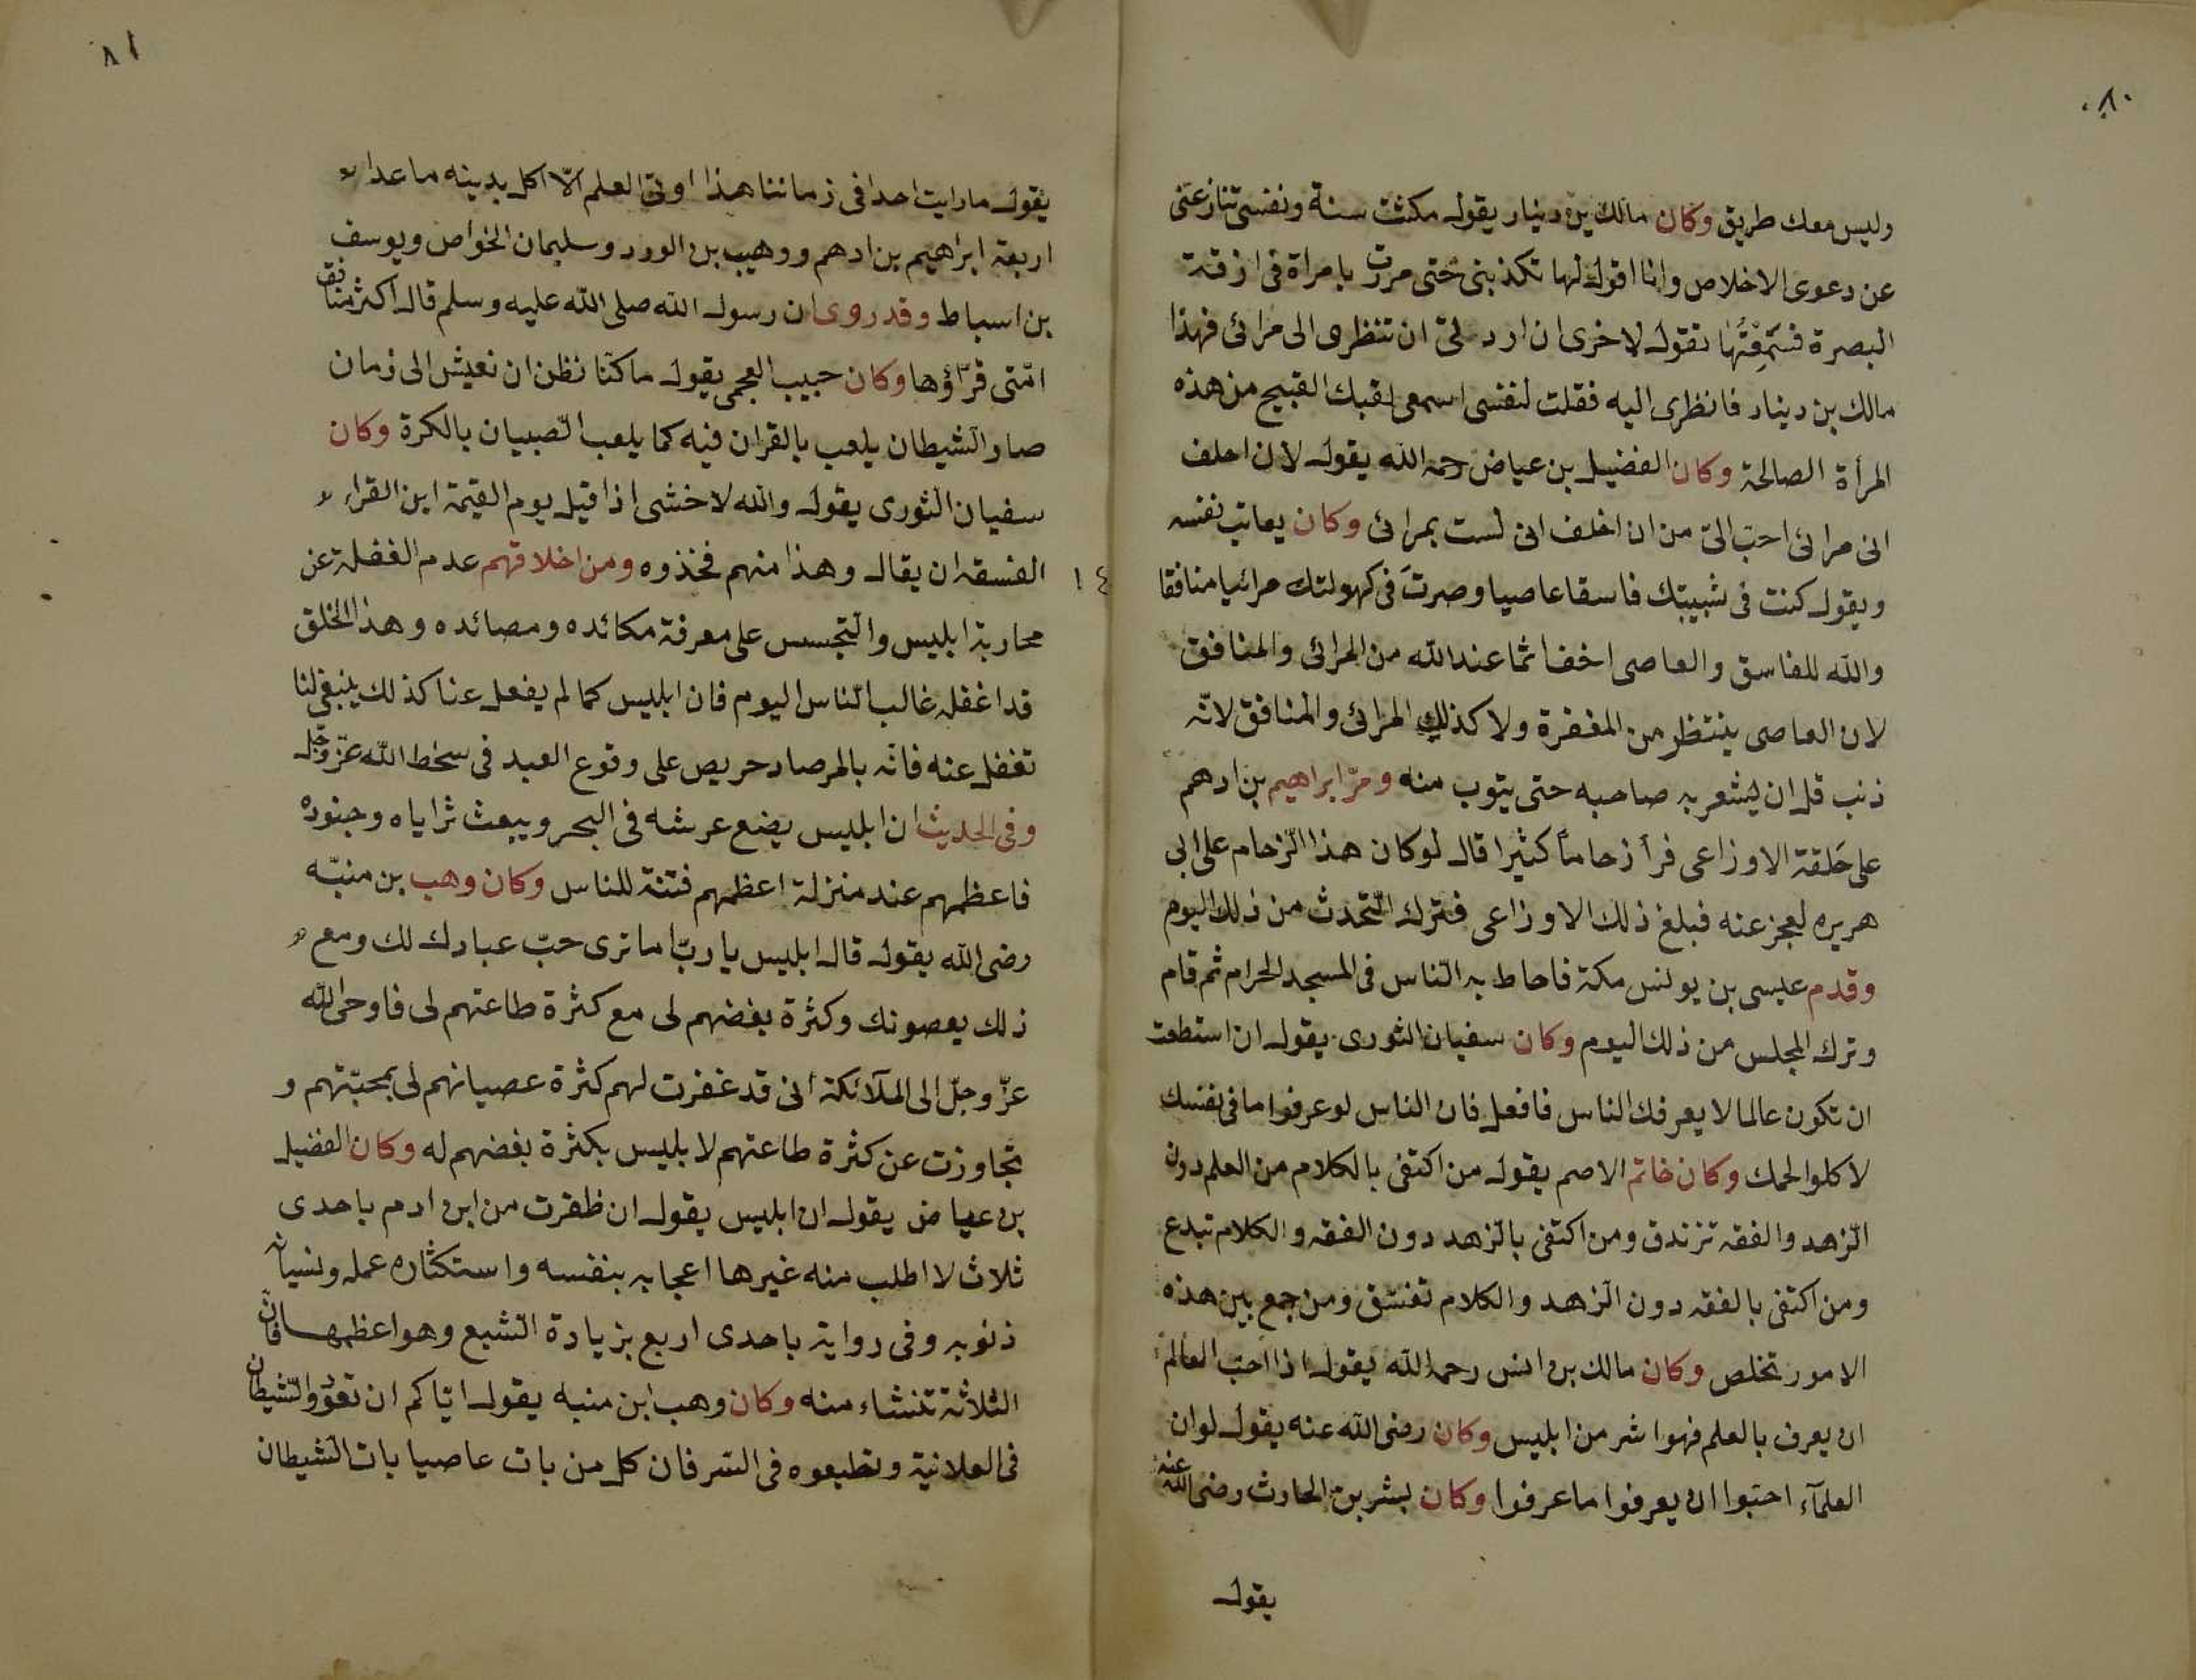 ٨٠
وليس معك طريق وكان مالك بن دينار يقول مكثت سنة ونفسى تنازعنى
عن دعوى الاخلاص وانا اقول لها تكذبنى حتى مررت بامراة فى ازقة
البصرة فسَمِعْتُها تقول لاخرى ان اردتى ان تنظرى الى مرائى فهذا
مالك بن دينار فانظرى اليه فقلت لنفسى اسمعى لقبك القبيح من هذه
المرأة الصالحة وكان الفضيل بن عياض رحمه الله يقول لان احلف
انى مرائى احبّ الىّ من ان احلف انى لست بمرائى وكان يعاتب نفسه
ويقول كنت فى شبيبتك فاسقا عاصيا وصرتَ فى كهولتك مرائيا منافقا
والله للفاسق والعاصى اخف اثما عند الله من المرائى والمنافق
لان العاصى ينتظر من المغفرة ولا كذلك المرائى والمنافق لانّه
ذنب قل ان يشعر به صاحبه حتى يتوب منه ومرّ ابراهيم بن ادهم
على حَلقة الاوزاعى فرأ زحاماً كثيرا قال لو كان هذا الزّحام على ابى
هريره لعجز عنه فبلغ ذلك الاوزاعى فترك التّحدث من ذلك اليوم
وقدم عيسى بن يونس مكة فاحاط به النّاس فى المسجد الحرام ثم قام
وترك المجلس من ذلك اليوم وكان سفيان الثورى يقول ان استطعت
ان تكون عالما لا يعرفك الناس فافعل فان الناس لو عرفوا ما فى نفسك
لاكلوا لحمك وكان خاتم الاصم يقول من اكتفى بالكلام من العلم دون
الزّهد والفقه تزندق ومن اكتفى بالزّهد دون الفقه والكلام تبدع
ومن اكتفى بالفقه دون الزّهد والكلام تفسّق ومن جمع بين هذه
الامور تخلص وكان مالك بن انس رحمه الله يقول اذا احبّ العالم
ان يعرف بالعلم فهوا شر من ابليس وكان رضى الله عنه يقول لوان
العلمآء احبّوا ان يعرفوا ما عرفوا وكان بشر بن الحارث رضى الله عنه
يقول
٨١
يقول ما رايت احدا فى زماننا هذا اوتى العلم الّا اكل بدينه ما عدا
اربعة ابراهيم بن ادهم ووهيب بن الورد وسليمان الخواص ويوسف
بن اسباط وقد روى ان رسول الله صلى الله عليه وسلم قال اكثر منافق
امّتى قرّاؤها وكان حبيب العجمى يقول ما كنّا نظن ان نعيش الى زمان
صار الشيطان يلعب بالقران فيه كما يلعب الصّبيان بالكرة وكان
سفيان الثورى يقول والله لاخشى اذا قيل يوم القيمة اين القراء
الفسقه ان يقال وهذا منهم فخذوه ومن اخلاقهم عدم الغفلة عن
١٤
محاربة ابليس والتّجسس على معرفة مكائده ومصائده وهذا الخلق
قد اغفله غالب النّاس اليوم فان ابليس كما لم يفعل عنا كذلك ينبغى لنا
تغفل عنه فانّه بالمرصاد حريص على وقوع العبد فى سخط الله عزّ وجّل
وفى الحديث ان ابليس يضع عرشه فى البحر ويبعث ثراياه وجنوده
فاعظمهم عند منزلة اعظمهم فتنة للناس وكان وهب بن منبّه
رضى الله يقول قال ابليس يا ربّ اما ترى حبّ عبادك لك ومع
ذلك يعصونك وكثرة بغضهم لى مع كثرة طاعتهم لى فاوحى الله
عزّ وجلّ الى الملآئكة انى قد غفرت لهم كثرة عصيانهم لى بمحبّتهم و
تجاوزت عن كثرة طاعتهم لابليس بكثرة بغضهم له وكان الفضيل
بن عياض يقول ان ابليس يقول ان ظفرت من ابن ادم باحدى
ثلاث لا اطلب منه غيرها اعجابه بنفسه واستكثاره عمله ونسيانه
ذنوبه وفى رواية باحدى اربع بزيادة الشبع وهو اعظمها فانّ
الثلاثة تنشاء منه وكان وهب ابن منبه يقول ايّاكم ان تعدّوا الشيطان
فى العلانية وتطيعوه فى السّر فان كل من بات عاصيا بات الشيطان